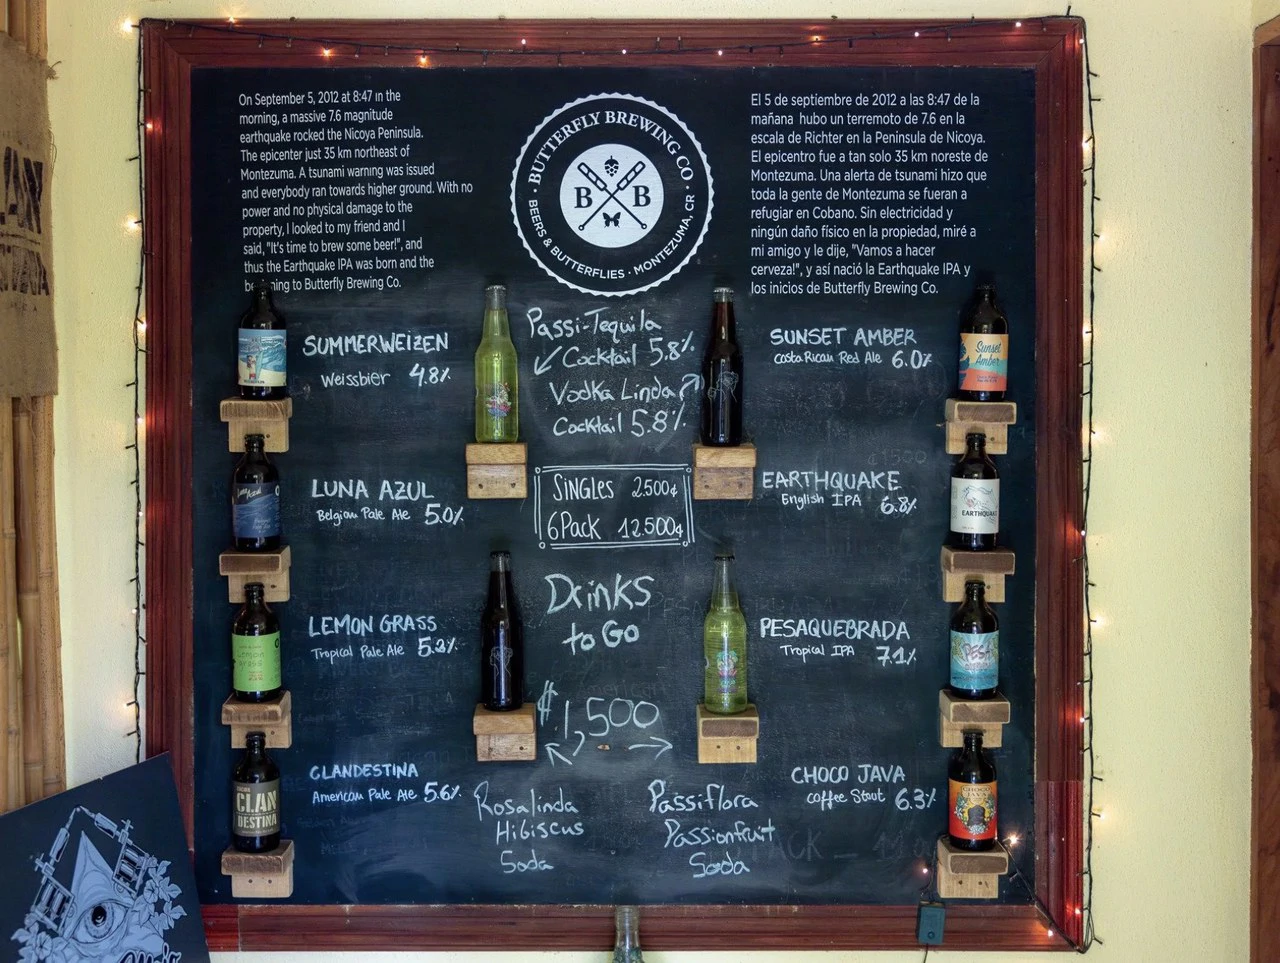 On September 5, 2012 at 8:47 in the
morning, a massive 7.6 magnitude
earthquake rocked the Nicoya Peninsula.
The epicenter just 35 km northeast of
Montezuma. A tsunami warning was issued
and everybody ran towards higher ground. With no
power and no physical damage to the
property, I looked to my friend and I
said, "It's time to brew some beer!", and
thus the Earthquake IPA was born and the
to Butterfly Brewing Co.
BUTTERFLY BREWING CO
B B
BEERS & BUTTERFLIES · MONTEZUMA, CR
El 5 de septiembre de 2012 a las 8:47 de la
mañana hubo un terremoto de 7.6 en la
escala de Richter en la Peninsula de Nicoya.
El epicentro fue a tan solo 35 km noreste de
Montezuma. Una alerta de tsunami hizo que
toda la gente de Montezuma se fueran a
refugiar en Cobano. Sin electricidad y
ningún daño físico en la propiedad, miré a
mi amigo y le dije, "Vamos a hacer
cerveza!", y así nació la Earthquake IPA y
los inicios de Butterfly Brewing Co.
SUMMERWEIZEN
Weissbier 4.8%
LUNA AZUL
Belgian Pale Ale 5.0%
LEMON GRASS
Tropical Pale Ale 5.2%
CLANDESTINA
American Pale Ale 5.6%
Passi-Tequila
Cocktail 5.8%
Vodka Linda
Cocktail 5.8%
SINGLES 2.500¢
6Pack 12.500¢
Drinks
to Go
₡1,500
Rosalinda
Hibiscus
Soda
Passiflora
Passionfruit
Soda
SUNSET AMBER
Costa Rican Red Ale 6.0%
EARTHQUAKE
English IPA 6.8%
PESAQUEBRADA
Tropical IPA 7.1%
CHOCO JAVA
coffee Stout 6.3%
Luna Azul
Lemon
Grass
CLAN
DESTINA
Sunset
Amber
EARTHQUAKE
PESA
CHOCO
JAVA